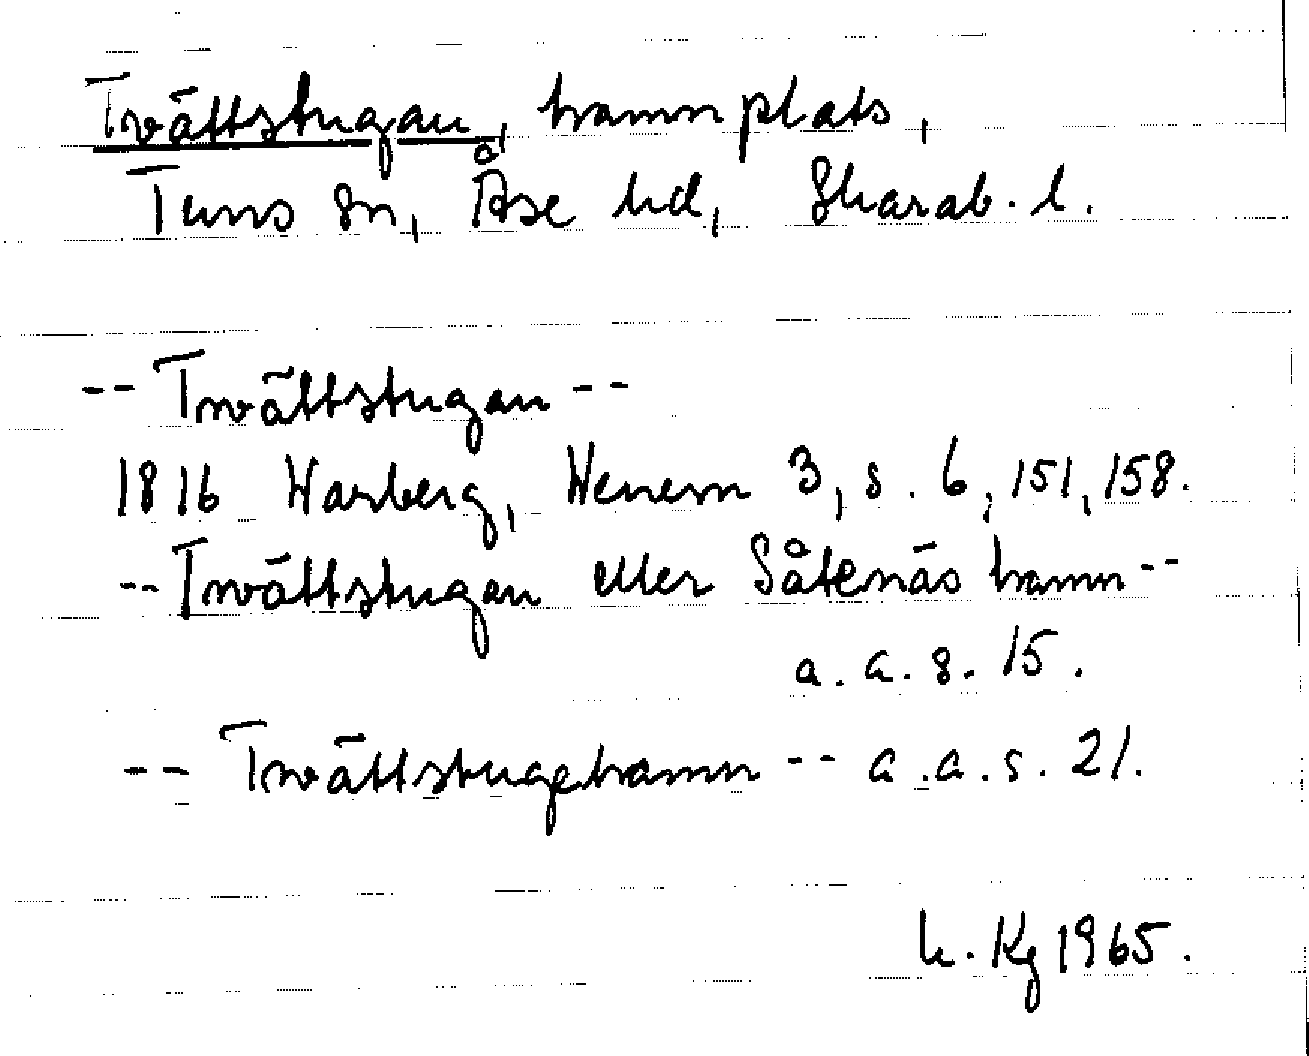 Tvättstugan, hamnplats,
Tuns sn, Åse hd, Skarab. l.
-- Twättstugan --
1816 Warberg, Wenern 3, s. 6, 151, 158.
-- Twättstugan eller Såtenäs hamn --
a. a. s. 15.
-- Twättstugehamn -- a. a. s. 21.
h. Kg 1965.